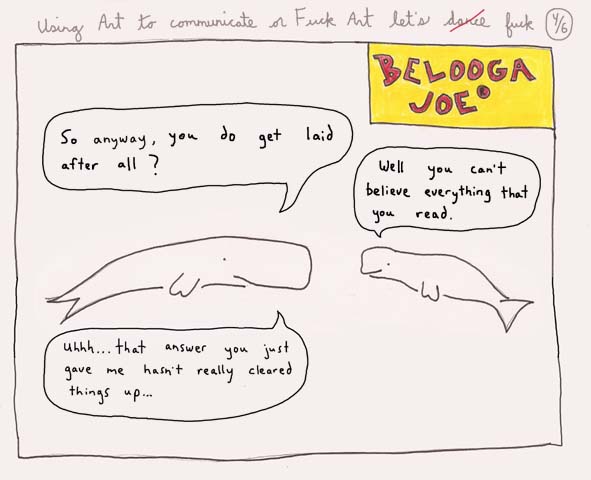 Using Art to communicate or Fuck Art let's dance fuck 4/6
BELOOGA
JOE®
So anyway, you do get laid
after all?
Well you can't
believe everything that
you read.
Uhhh...that answer you just
gave me hasn't really cleared
things up...